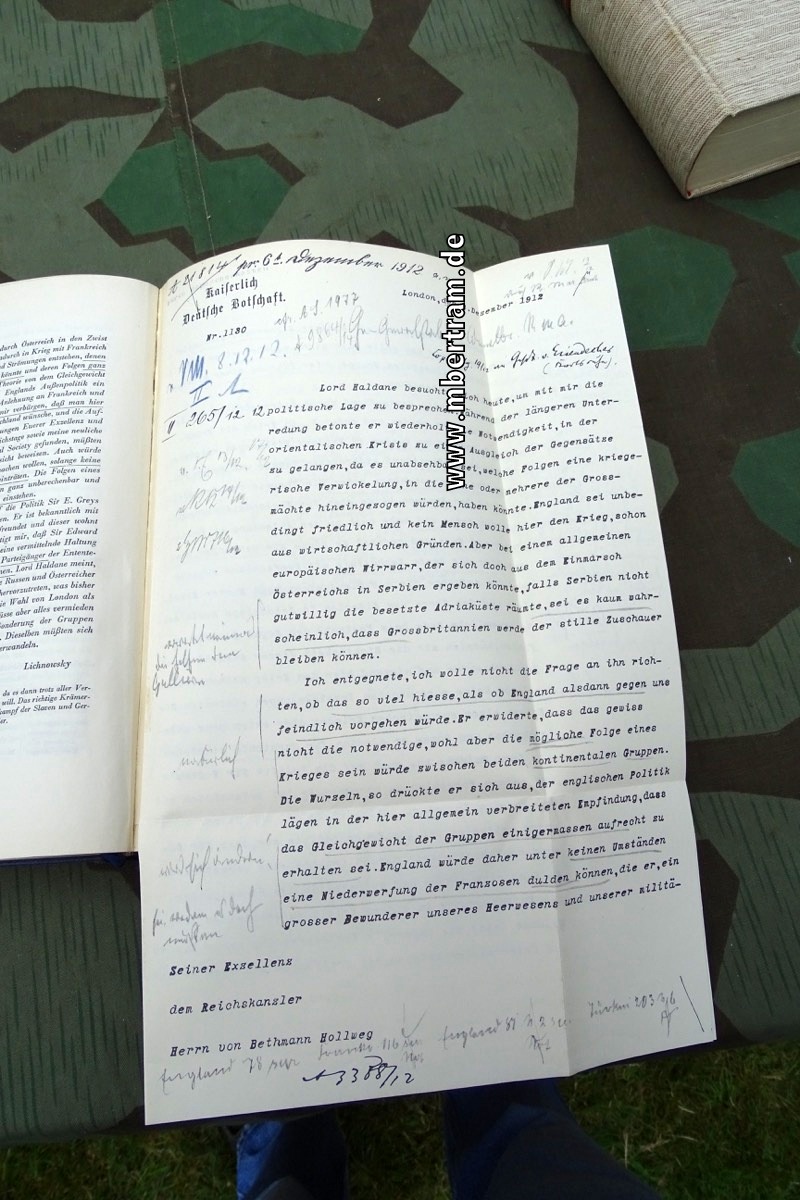 durch Österreich in den Zwist
dadurch in Krieg mit Frankreich
d Strömungen entstehen, denen
könnte und deren Folgen ganz
Theorie von dem Gleichgewicht
Englands Außenpolitik ein
Anlehnung an Frankreich und
mir verbürgen, daß man hier
chland wünsche, und die Auf-
ungen Euerer Exzellenz und
ichstage sowie meine neuliche
l Society gefunden, müßten
sicht beweisen. Auch würde
uchen wollen, solange keine
einträten. Die Folgen eines
n ganz unberechenbar und
einstehen.
f die Politik Sir E. Greys
en. Er ist bekanntlich mit
freundet und dieser wohnt
tigt mir, daß Sir Edward
eine vermittelnde Haltung
Parteigänger der Entente-
nen. Lord Haldane meint,
e Russen und Österreicher
hervorzutreten, was bisher
ie Wahl von London als
üsse aber alles vermieden
onderung der Gruppen
. Dieselben müßten sich
erwandeln.
Lichnowsky
da es dann trotz aller Ver-
will. Das richtige Krämer-
kampf der Slaven und Ger-
er.
A 21814 pr. 6. Dezember 1912
Kaiserlich
Deutsche Botschaft.
London, Dezember 1912
Nr.1180
A.S. 1977
8.12.12.
II
II 265/12 12
Lord Haldane besuchte mich heute,um mit mir die
politische Lage zu besprechen. Während der längeren Unter-
redung betonte er wiederholt die Notwendigkeit,in der
orientalischen Krisis zu einem Ausgleich der Gegensätze
zu gelangen,da es unabsehbar sei,welche Folgen eine kriege-
rische Verwickelung,in die eine oder mehrere der Gross-
mächte hineingezogen würden,haben könnte.England sei unbe-
dingt friedlich und kein Mensch wolle hier den Krieg,schon
aus wirtschaftlichen Gründen.Aber bei einem allgemeinen
europäischen Wirrwarr,der sich doch aus dem Einmarsch
Österreichs in Serbien ergeben könnte,falls Serbien nicht
gutwillig die besetzte Adriaküste räumte,sei es kaum wahr-
scheinlich,dass Grossbritannien werde der stille Zuschauer
bleiben können.
Ich entgegnete,ich wolle nicht die Frage an ihn rich-
ten,ob das so viel hiesse,als ob England alsdann gegen uns
feindlich vorgehen würde.Er erwiderte,dass das gewiss
nicht die notwendige,wohl aber die mögliche Folge eines
Krieges sein würde zwischen beiden kontinentalen Gruppen.
Die Wurzeln,so drückte er sich aus,der englischen Politik
lägen in der hier allgemein verbreiteten Empfindung,dass
das Gleichgewicht der Gruppen einigermassen aufrecht zu
erhalten sei.England würde daher unter keinen Umständen
eine Niederwerfung der Franzosen dulden können,die er,ein
grosser Bewunderer unseres Heerwesens und unserer militä-
natürlich
wird sich ändern!
Seiner Exzellenz
dem Reichskanzler
Herrn von Bethmann Hollweg
England 78
England
A 3388/12
www.mbertram.de